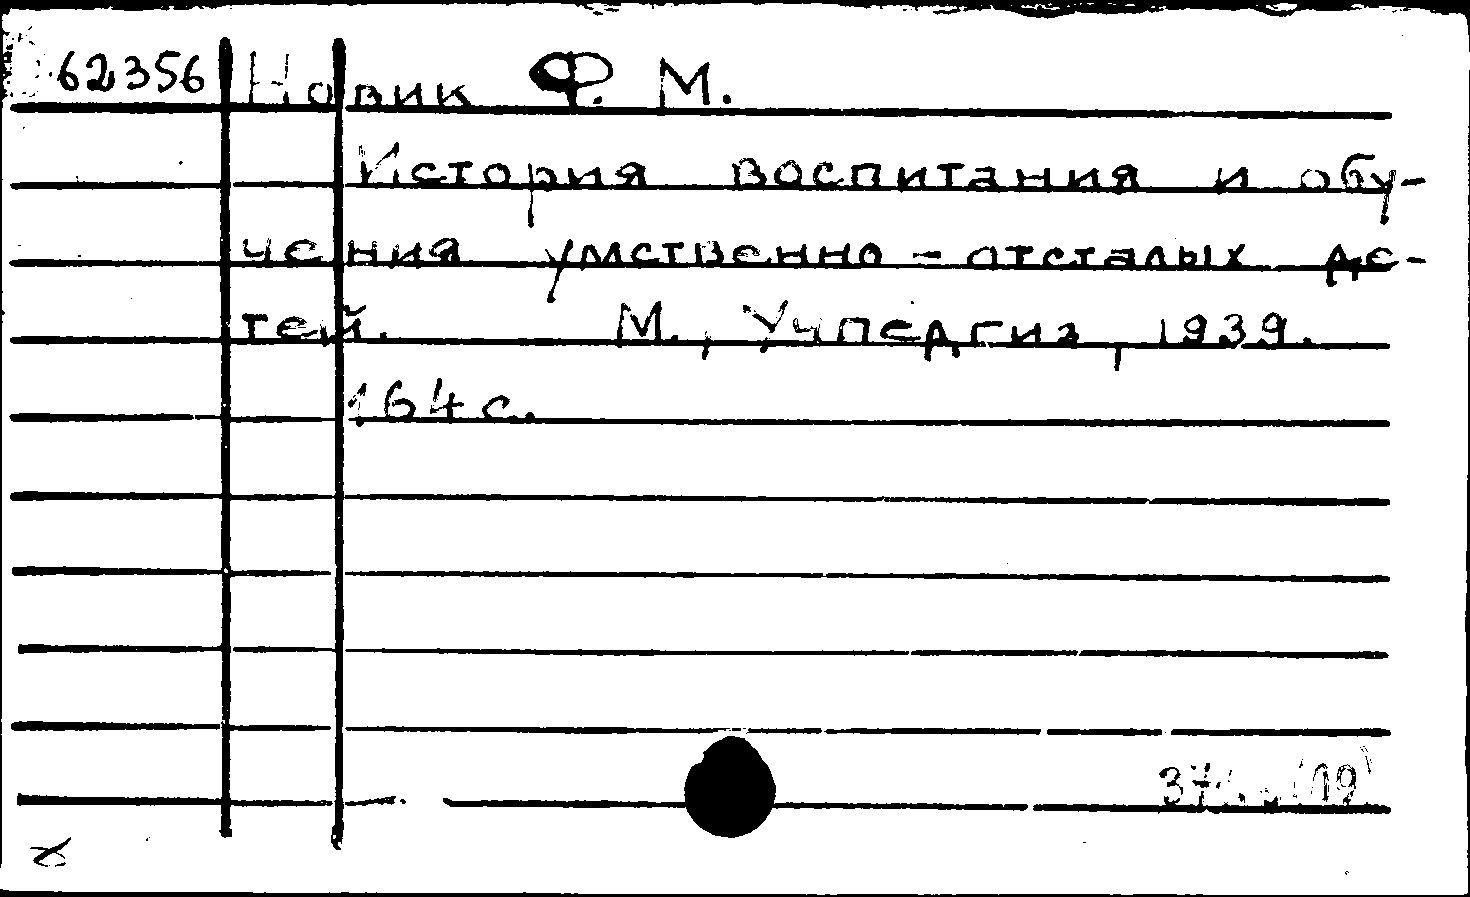 62356 Новик Ф. М.
История воспитания и обу-
чения умственно-отсталых де-
тей. М., Учпедгиз, 1939.
164 с.